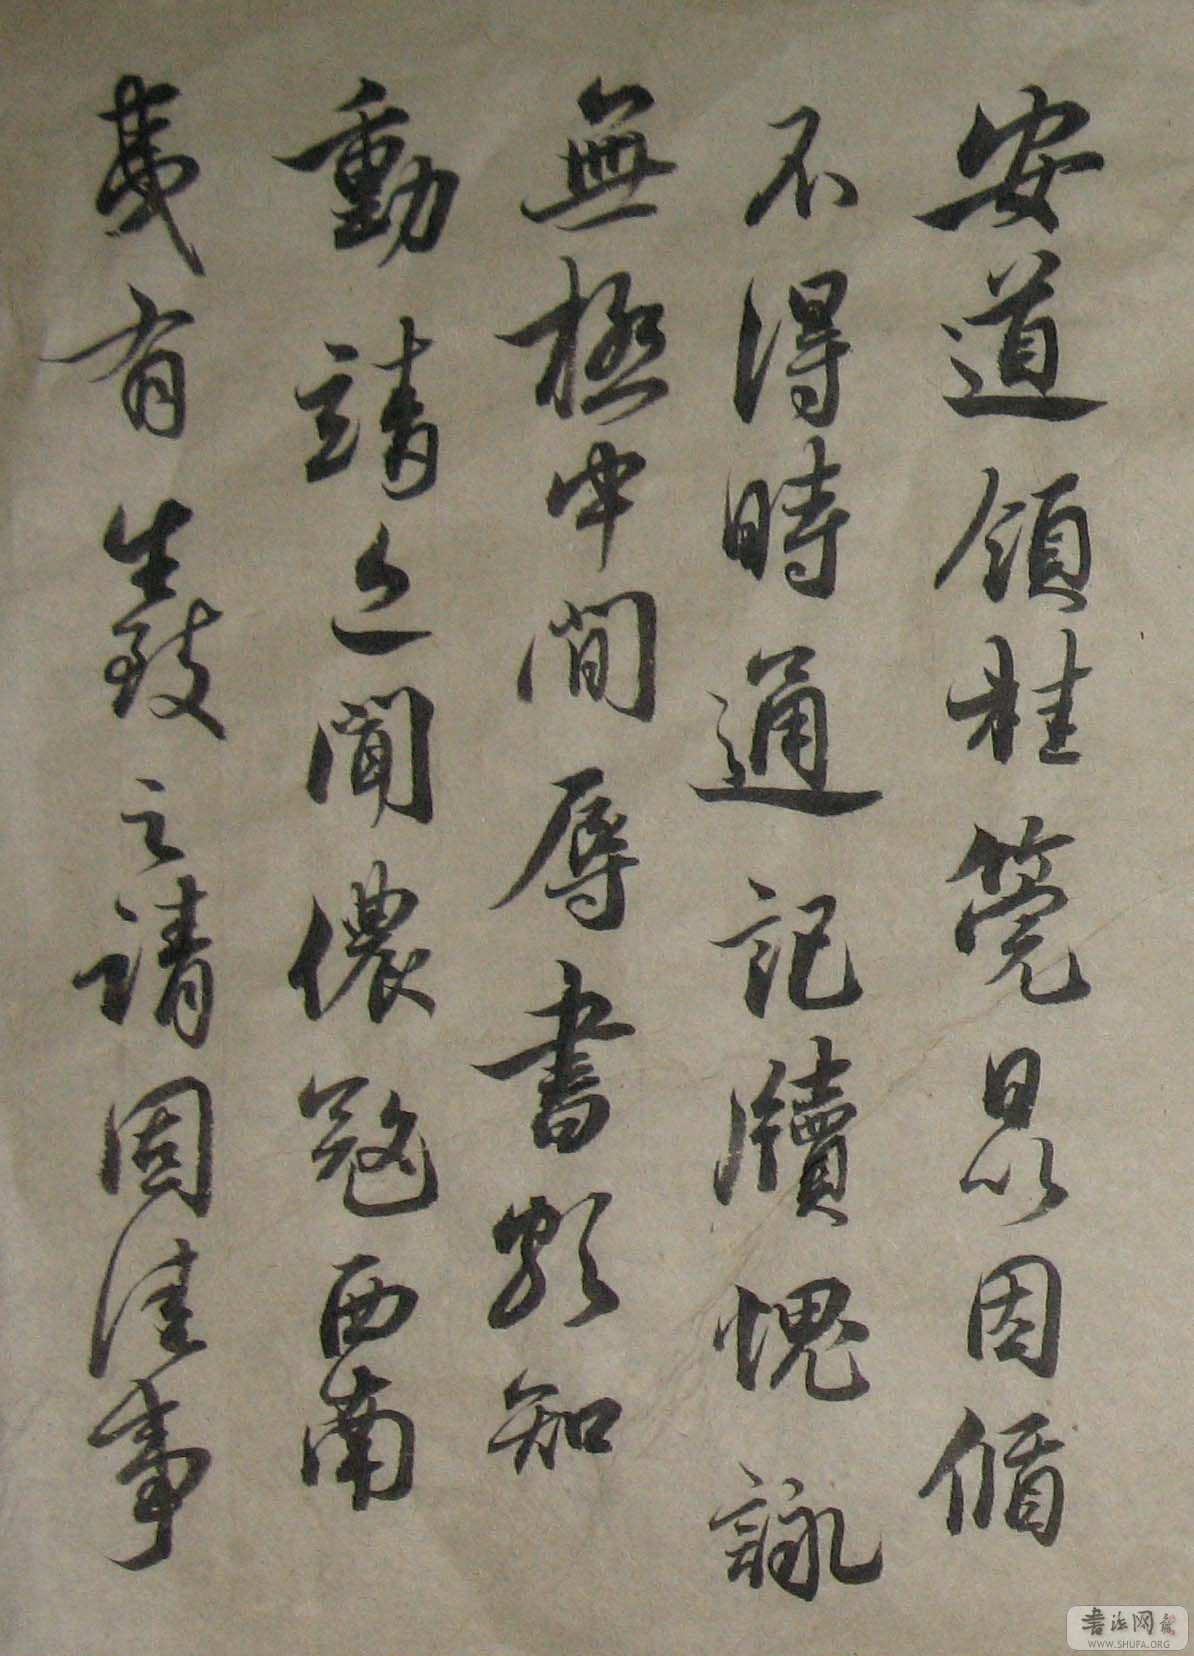 安道領桂筦日以因循
不得時通記牘愧詠
無極中間辱書頗知
動靖近聞儂寇西南
夷有生致之請固佳事
書法网
WWW.SHUFA.ORG